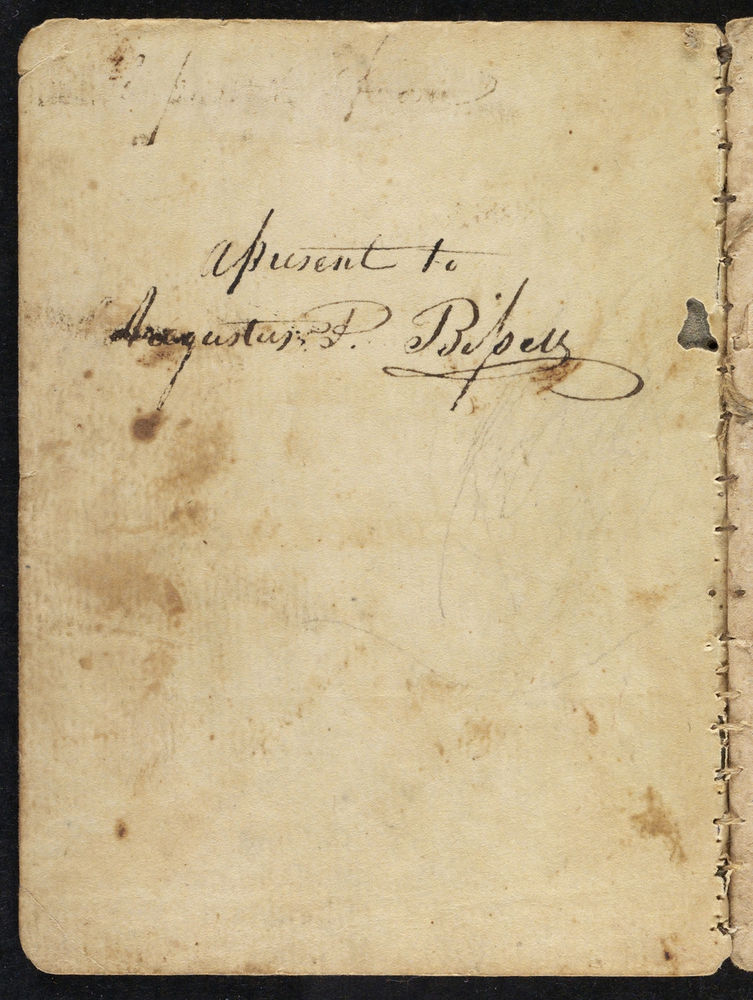 a present to
Augustus P. Bissell